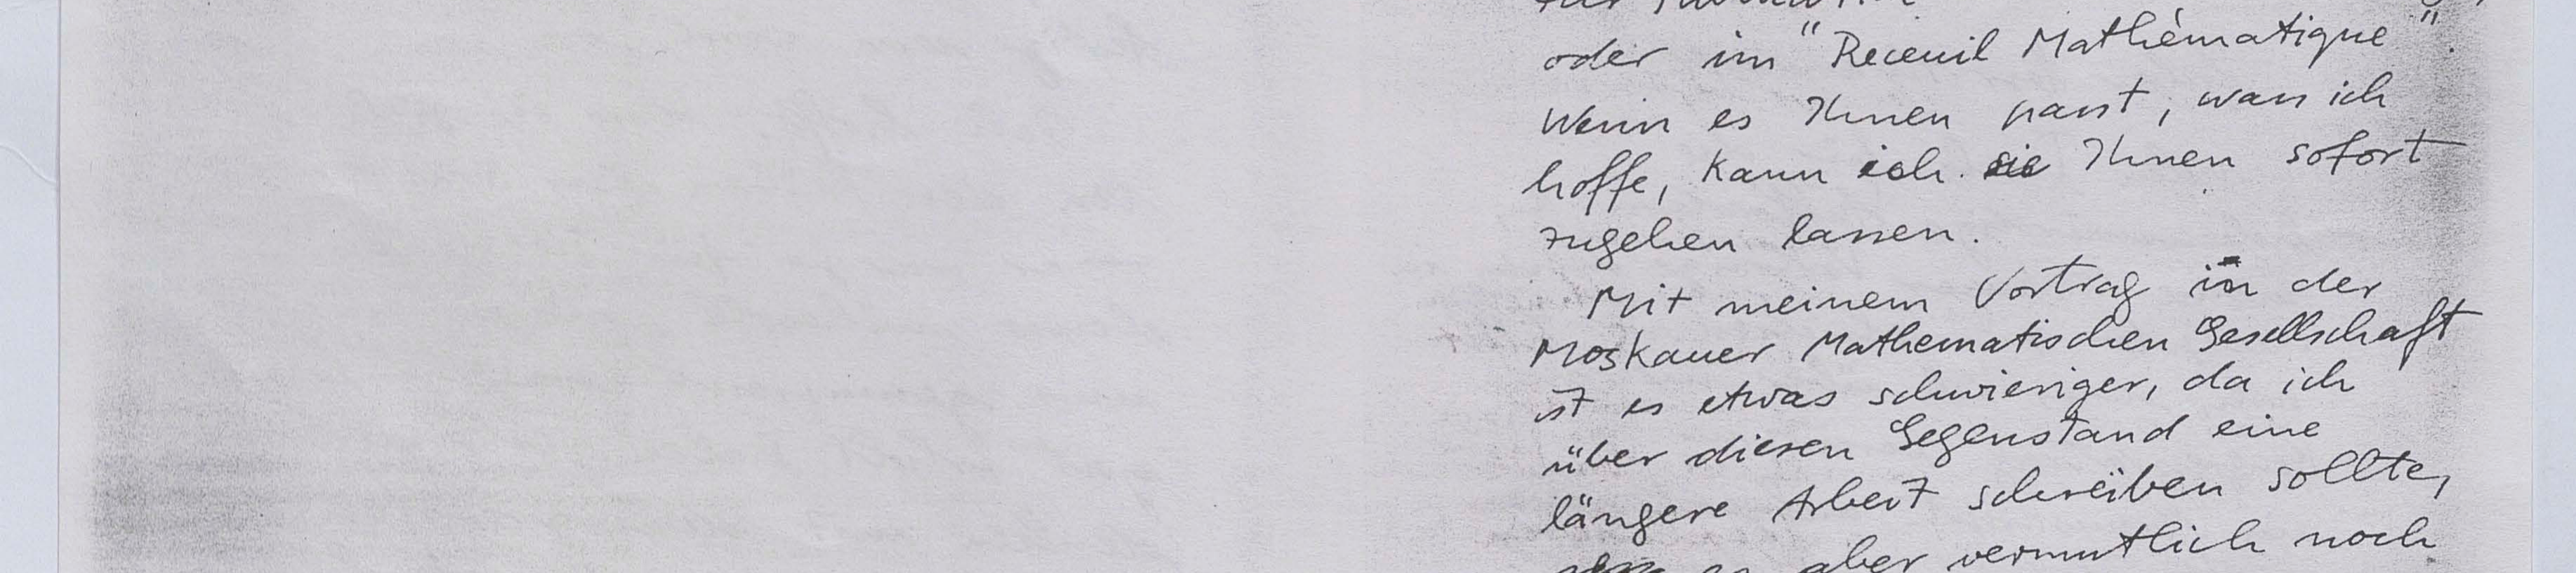 oder im "Receuil Mathématique".
Wenn es Ihnen passt, was ich
hoffe, kann ich sie Ihnen sofort
zugehen lassen.
Mit meinem Vortrag in der
Moskauer Mathematischen Gesellschaft
ist es etwas schwieriger, da ich
über diesen Gegenstand eine
längere Arbeit schreiben sollte,
es aber vermutlich noch